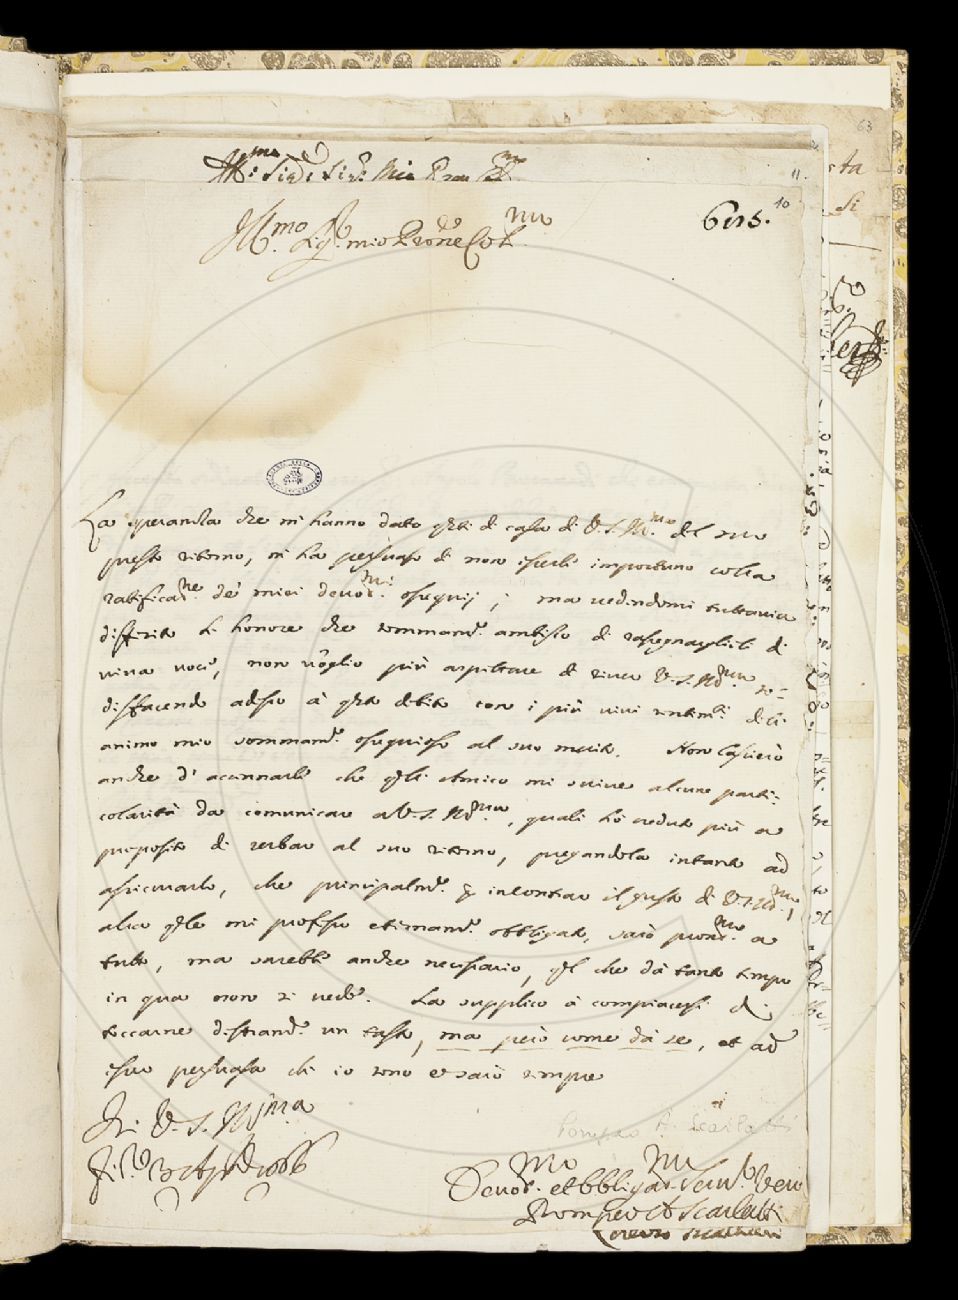 63
11.
10
6115.
Ill.mo Sig.r mio Prone Col.mo
La speranza che mi hanno dato q.sti di casa di V.S. Ill.ma del suo
presto ritorno, mi ha persuaso di non esserli importuno colla
ratificat.ne de miei devot.mi ossequij; ma vedendomi tuttavia
differito l' honore che sommam.e ambisco di rassegnarglieli di
viva voce, non voglio più aspettare di river V.S. Ill.ma so-
disfacendo adesso à q.sto debito con i più vivi sentim.ti dell'
animo mio sommam.e ossequioso al suo merito. Non lascierò
anche d'accennarli che q.ll' Amico mi scrive alcune parti-
colarità da comunicare a V.S. Ill.ma, quali hò veduto più a
proposito di serbar al suo ritorno, pregandola intanto ad
assicurarlo, che principalm.e p incontrar il gusto di V.S. Ill.ma,
alla q.le mi professo etternam.e obbligato, sarò pront.mo a
tutto, ma sarebbe anche necessario, q.l che dà tanto tempo
in qua non si vede. La supplico à compiacersi di
toccarne destram.e un tasto, ma però come dà se, et ad
esser persuasa che io sono e sarò sempre
Di V.S. Ill.ma
Pompeo A. Scarlatti
Devot.mo et Obbligat.mo Serv.r Vero
Pompeo A Scarlatti